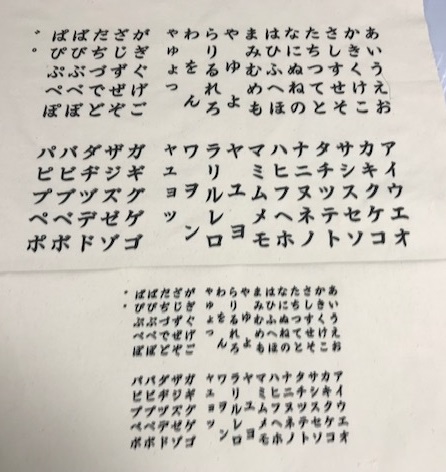 あいうえお
かきくけこ
さしすせそ
たちつてと
なにぬねの
はひふへほ
まみむめも
やゆよ
らりるれろ
わをん
ゃゅょっ
がぎぐげご
ざじずぜぞ
だぢづでど
ばびぶべぼ
ぱぴぷぺぽ
゛゜
アイウエオ
カキクケコ
サシスセソ
タチツテト
ナニヌネノ
ハヒフヘホ
マミムメモ
ヤユヨ
ラリルレロ
ワヲン
ャュョッ
ガギグゲゴ
ザジズゼゾ
ダヂヅデド
バビブベボ
パピプペポ
あいうえお
かきくけこ
さしすせそ
たちつてと
なにぬねの
はひふへほ
まみむめも
やゆよ
らりるれろ
わをん
ゃゅょっ
がぎぐげご
ざじずぜぞ
だぢづでど
ばびぶべぼ
ぱぴぷぺぽ
゛゜
アイウエオ
カキクケコ
サシスセソ
タチツテト
ナニヌネノ
ハヒフヘホ
マミムメモ
ヤユヨ
ラリルレロ
ワヲン
ャュョッ
ガギグゲゴ
ザジズゼゾ
ダヂヅデド
バビブベボ
パピプペポ